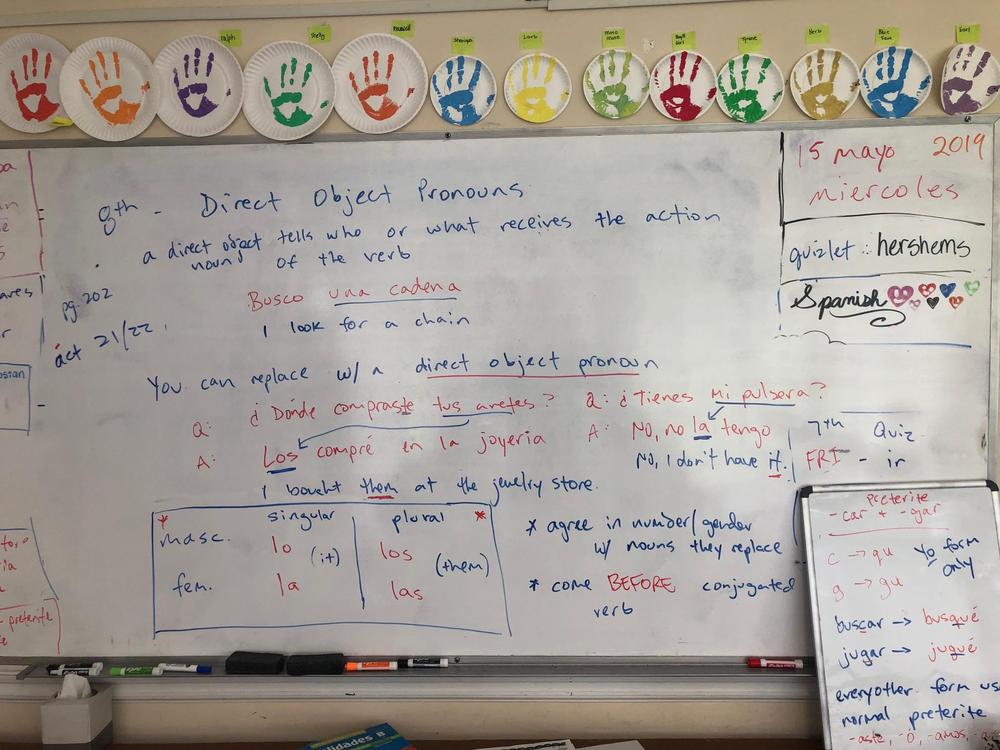 Ralph
Shelly
Maxwell
Shaniya
Lorb
Moto Moto
Tyrone
Herb
Blue Face
Earl
15 mayo 2019
miercoles
quizlet : hershems
Spanish
8th - Direct Object Pronouns
a direct object tells who or what receives the action
noun of the verb
pg. 202
act 21/22
Busco una cadena
I look for a chain
You can replace w/ a direct object pronoun
Q: ¿Dónde compraste tus aretes?
A: Los compré en la joyería
I bought them at the jewelry store.
Q: ¿Tienes mi pulsera?
A: No, no la tengo
No, I don't have it.
* singular plural *
masc. lo (it) los (them)
fem. la las
* agree in number/gender
w/ nouns they replace
* come BEFORE conjugated
verb
7th Quiz
FRI - ir
preterite
-car + -gar
c → qu Yo form
g → gu only
buscar → busqué
jugar → jugué
everyother form us
normal preterite
-aste, -ó, -amos,
osian
ares
- preterite
alidades B